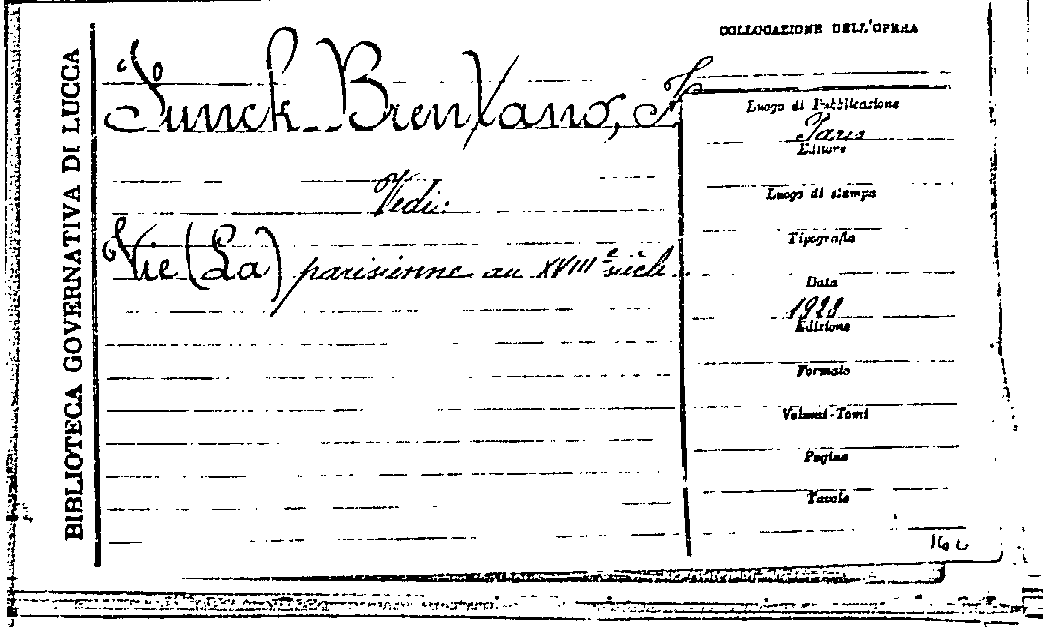 BIBLIOTECA GOVERNATIVA DI LUCCA
COLLOCAZIONE DELL'OPERA
Funck-Brentano, F
Vedi:
Vie (La) parisienne au XVIIIe siècle
Luogo di Pubblicazione
Paris
Editore
Luogo di stampa
Tipografia
Data
Edizione
Formato
Volumi-Tomi
Pagine
Tavole